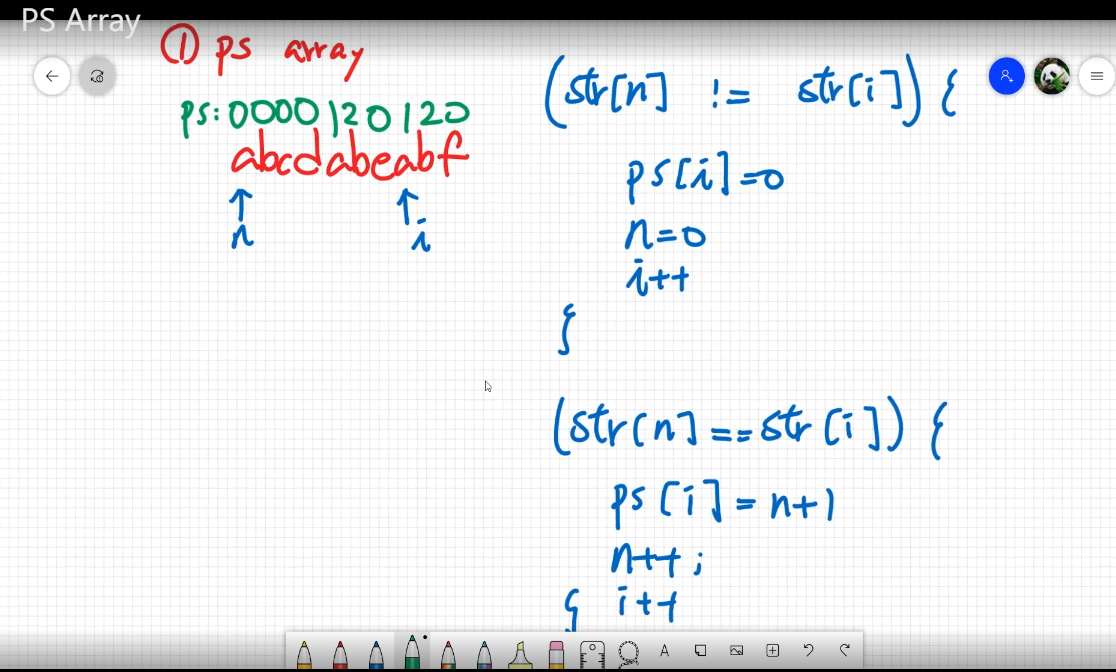 PS Array
① ps array
ps: 0000120120
abcdabeabf
n
i
(str[n] != str[i]) {
ps[i]=0
n=0
i++
}
(str[n]==str[i]) {
ps[i]=n+1
n++;
i++
}
A